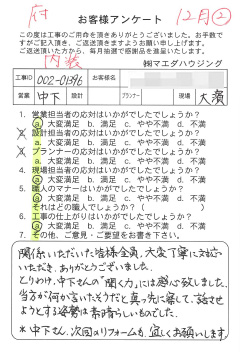 府
お客様アンケート
12月②
この度は工事のご用命を頂きありがとうございました。お手数で
すがご記入頂き、ご返送頂きますようお願い申し上げます。
ご返送頂いた方から、毎月抽選で感謝品を進呈いたします。
内装
㈱マエダハウジング
工事ID 002-01396 お客様名
営業 中下 設計 プランナー 現場 大濱
1. 営業担当者の応対はいかがでしたでしょうか?
a 大変満足 b. 満足 c. やや不満 d. 不満
2. 設計担当者の応対はいかがでしたでしょうか?
a. 大変満足 b. 満足 c. やや不満 d. 不満
3. プランナーの応対はいかがでしたでしょうか?
a. 大変満足 b. 満足 c. やや不満 d. 不満
4. 現場担当者の応対はいかがでしたでしょうか?
a 大変満足 b. 満足 c. やや不満 d. 不満
5. 職人のマナーはいかがでしたでしょうか?
a 大変満足 b. 満足 c. やや不満 d. 不満
それはどの職人でしょうか?( )
6. 工事の仕上がりはいかがでしたでしょうか?
a 大変満足 b. 満足 c. やや不満 d. 不満
7. その他、ご意見・ご要望をお書き下さい。
関係いただいた皆様全員、大変丁寧に対応
いただき、ありがとうございました。
とりわけ、中下さんの「聞く力」には感心致しました。
当方が何か言いたそうだと真っ先に察して、話せせ
ようとする姿勢は素晴らしいものでした。
*中下さん、次回のリフォームも宜しくお願いします。